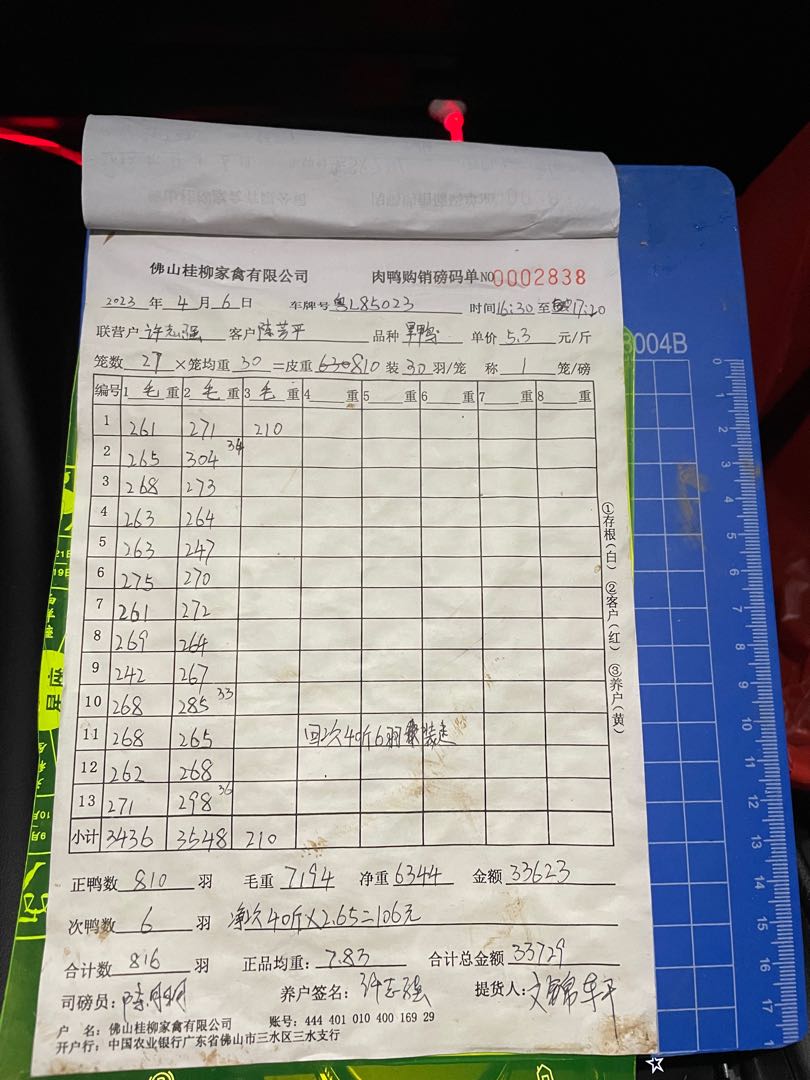 佛山桂柳家禽有限公司 肉鸭购销磅码单 NO 0002838
2023 年 4 月 6 日 车牌号 粤L85023 时间 16:30 至 17:20
联营户 许志强 客户 陈芳平 品种 单价 5.3 元/斤
笼数 27 ×笼均重 30 =皮重 810 装 30 羽/笼 称 1 笼/磅
编号 1 毛 重 2 毛 重 3 毛 重 4 重 5 重 6 重 7 重 8 重
1 261 271 210
2 265 304 34
3 268 273
4 263 264
5 263 247
6 275 270
7 261 272
8 269 264
9 242 267
10 268 285 33
11 268 265 回次40斤6羽 装走
12 262 268
13 271 298 36
小计 3436 3548 210
①存根(白) ②客户(红) ③养户(黄)
正鸭数 810 羽 毛重 7194 净重 6344 金额 33623
次鸭数 6 羽 净次40斤×2.65=106元
合计数 816 羽 正品均重: 7.83 合计总金额 33729
司磅员: 养户签名: 许志强 提货人:
户 名: 佛山桂柳家禽有限公司 账号: 444 401 010 400 169 29
开户行: 中国农业银行广东省佛山市三水区三水支行
8004B
0 1 2 3 4 5 6 7 8 9 10 11 12 13 14 15 16 17